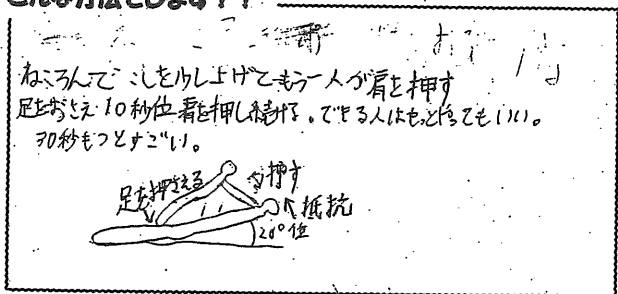 ねころんで こしを少し上げて もう一人が肩を押す
足をおさえ10秒位肩を押し続ける。できる人はもっとやってもいい。
30秒もつとすごい。
足を押さえる
押す
抵抗
20°位